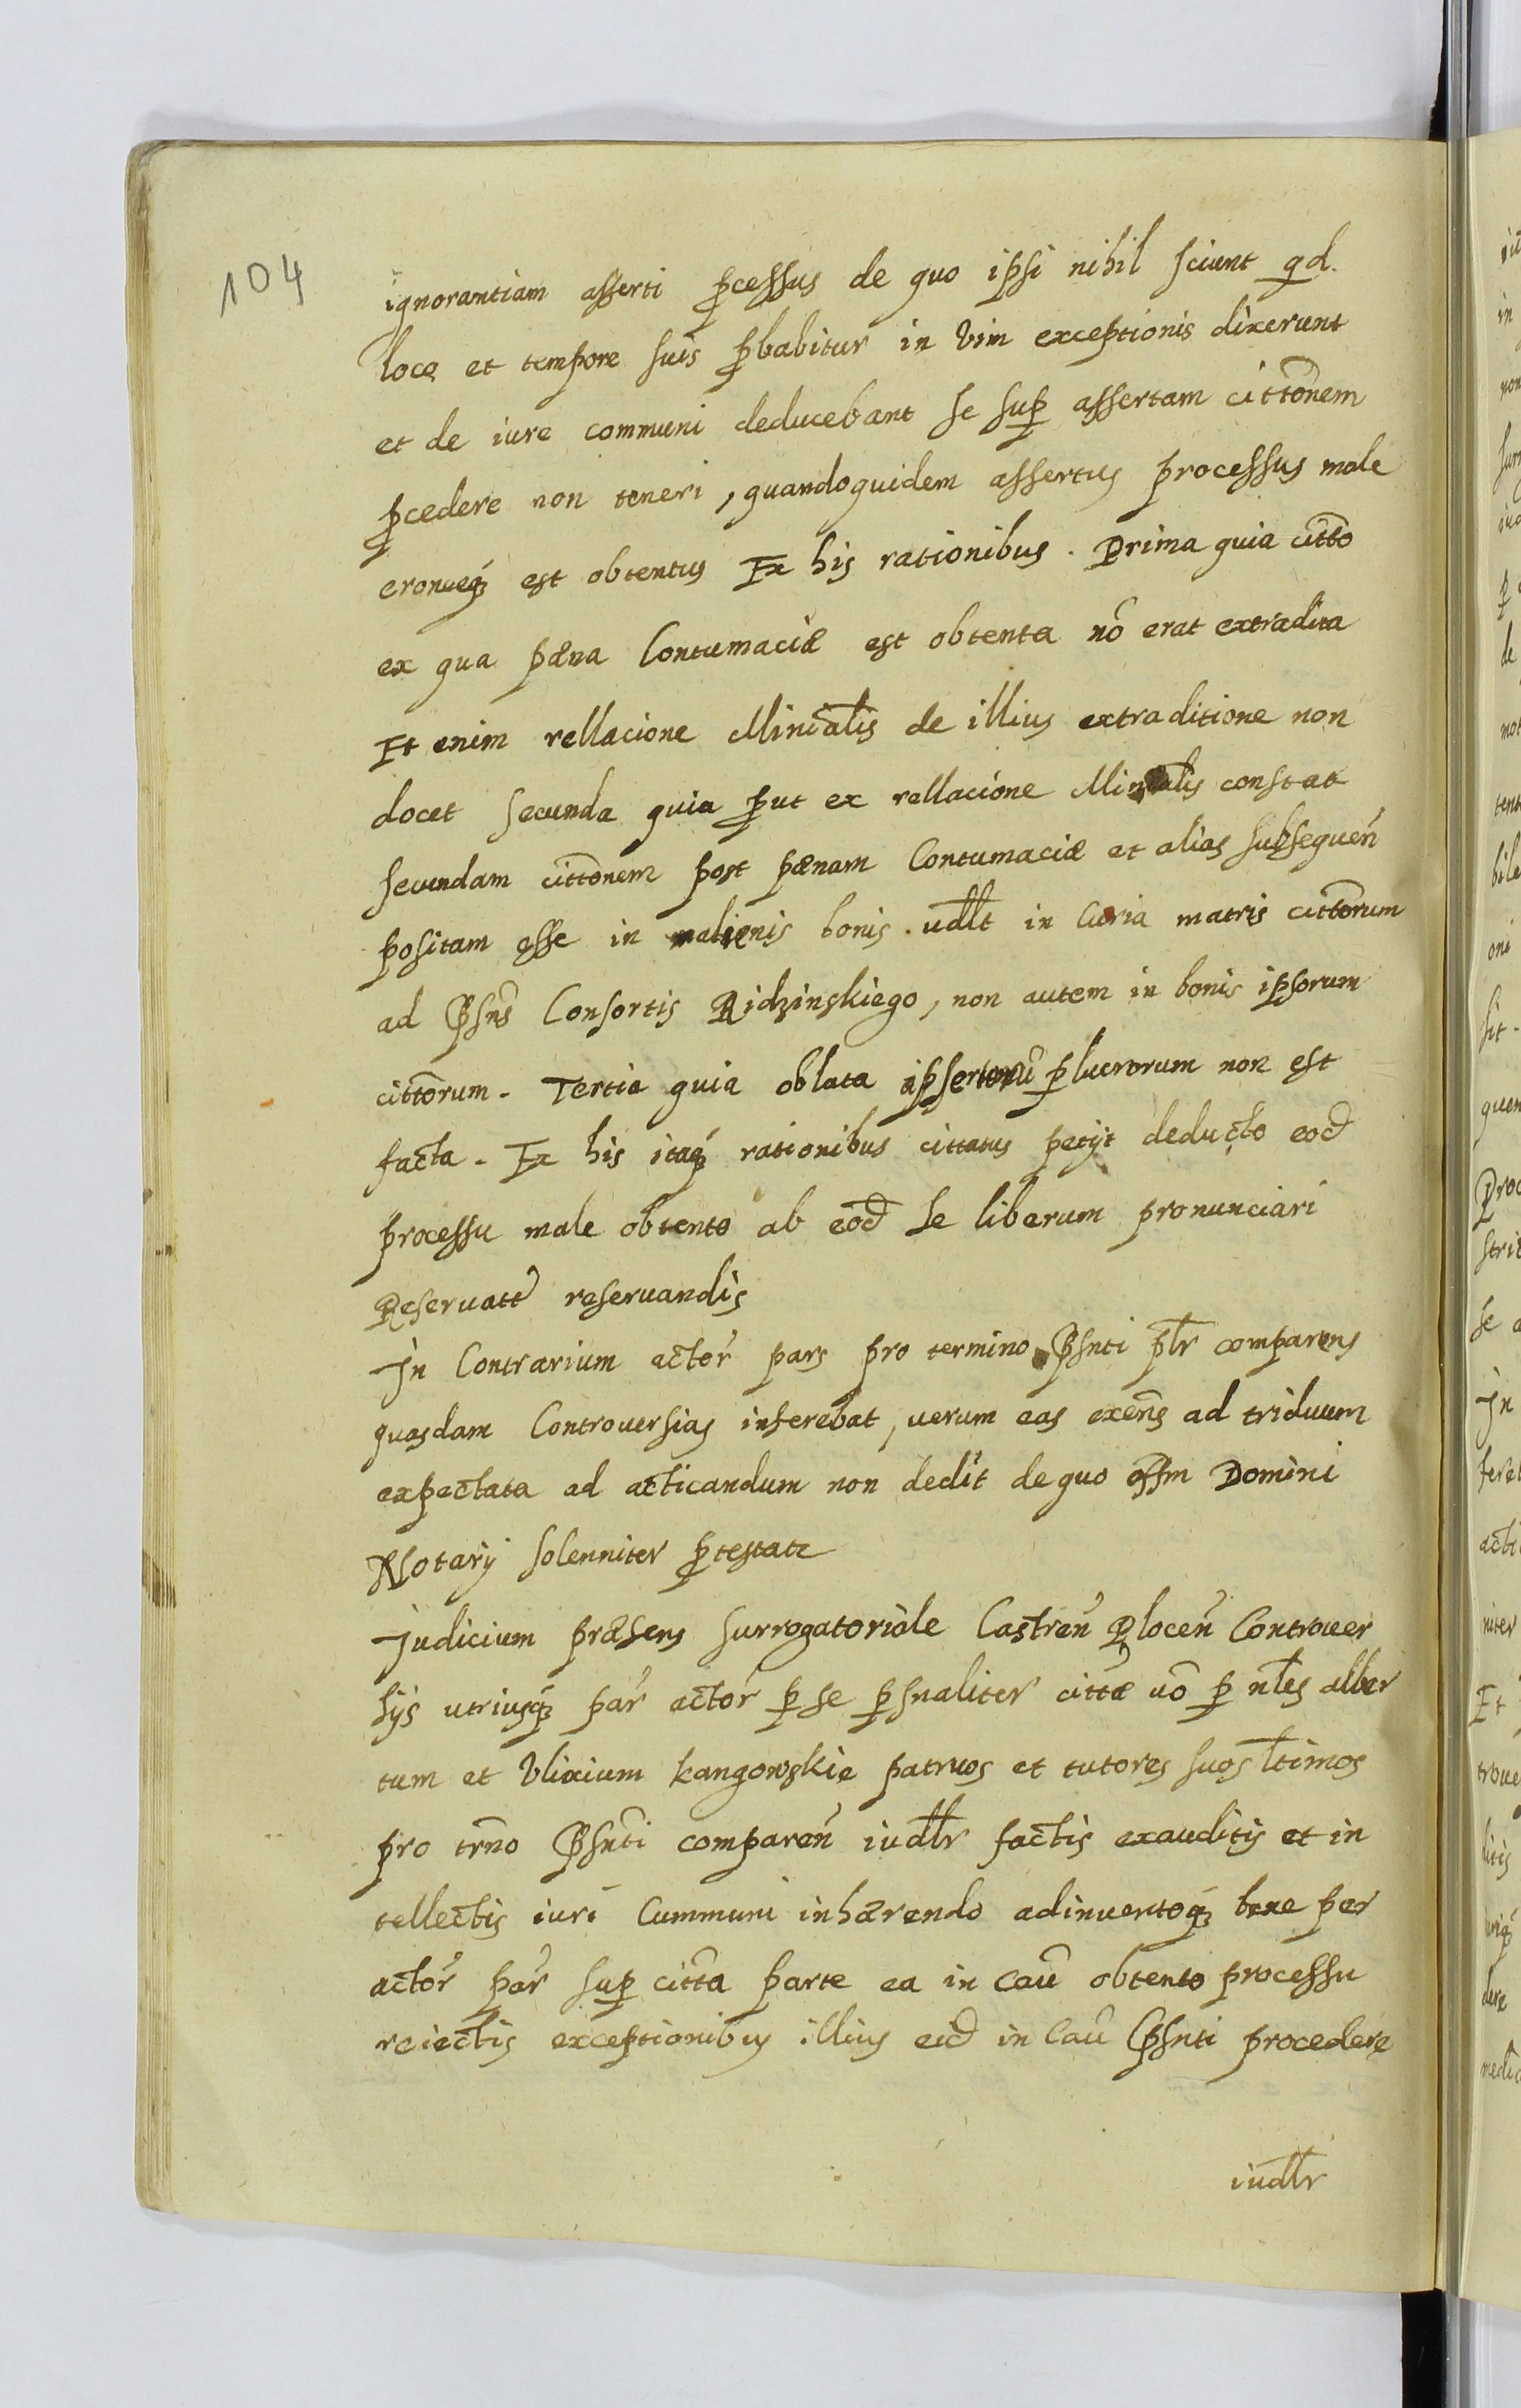 104
ignorantiam asserti ꝓcessus de quo ipsi nihil sciunt qd.
loco et tempore suis ꝓbabitur in vim exceptionis dixerunt
et de iure communi deducebant se suꝑ assertam cittōnem
ꝓcedere non teneri, quandoquidem assertus processus male
eronueqꝫ est obtentus Ex his rationibus. Prima quia citto
ex qua pæna Contumaciæ est obtenta nō erat extradita
Et enim rellacione Minialis de illius extraditione non
docet Secunda quia ꝓut ex rellacione Minialis constat
secundam cittōnem post pænam Contumaciæ et alias subsequen̄
positam esse in alienis bonis. vdlt in Curia matris cittōrum
ad Pn̄s Consortis Ridzinskiego, non autem in bonis ipsorum
cittōrum. Tertia quia oblata ꝓlucrorum non est
facta. Ex his itaqꝫ rationibus cittatus petijt deducto eod̄
processu male obtento ab eod̄ se liberum pronunciari
Reseruatt reseruandis
In Contrarium actor̄ pars pro termino Pn̄ti ptr comparens
quasdam Controuersias inferebat, uerum eas exens̄ ad triduum
expectata ad acticandum non dedit de quo offm Domini
Notarij solenniter ꝓtestatr
Judicium præsens surrogatoriale Castren̄ Plocen̄ Controuer
sijs utriusqꝫ par̄ actor̄ ꝑ se ꝑsnaliter cittæ uō ꝑ nles alber
tum et Vlixium kangowskie patruos et tutores suos ltimos
pro trn̄o Pn̄ti comparen̄ iudlr factis exauditis et in
tellectis iuri Cummuni inhærendo adinuentoqꝫ bene per
actor̄ par̄ suꝑ citta parte ea in Cau̅ obtento processu
reiectis exceptionibus illius eid̄ in Cau̅ Pn̄ti procedere
iudlr